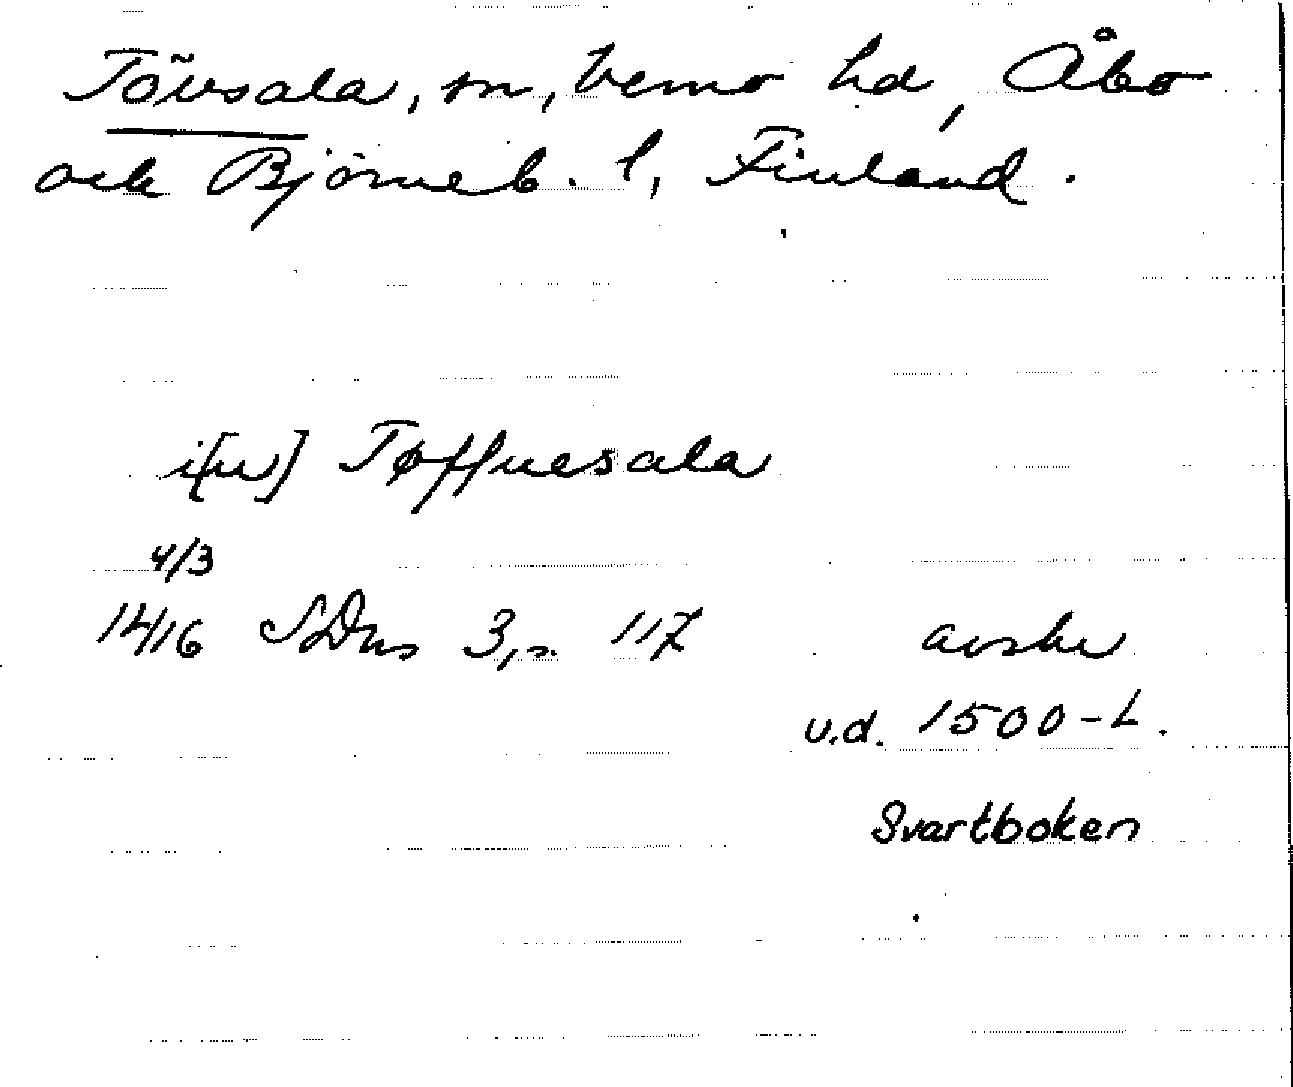 Tövsala, sn, Vemo hd, Åbo
och Björneb. l, Finland.
i[n] Tøffuesala
4/3
1416 SDns 3, s. 117 avskr
u.d. 1500-t.
Svartboken